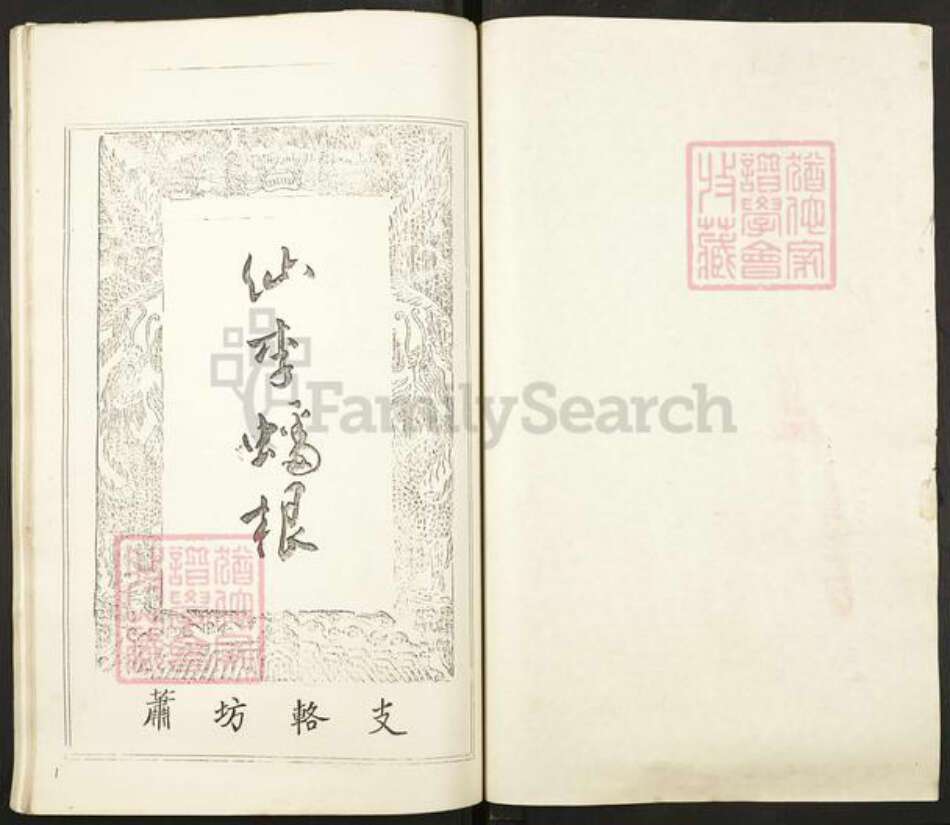 猶他家
譜學會
收藏
仙李蟠根
FamilySearch
猶他家
譜學會
收藏
蕭坊輅支
1